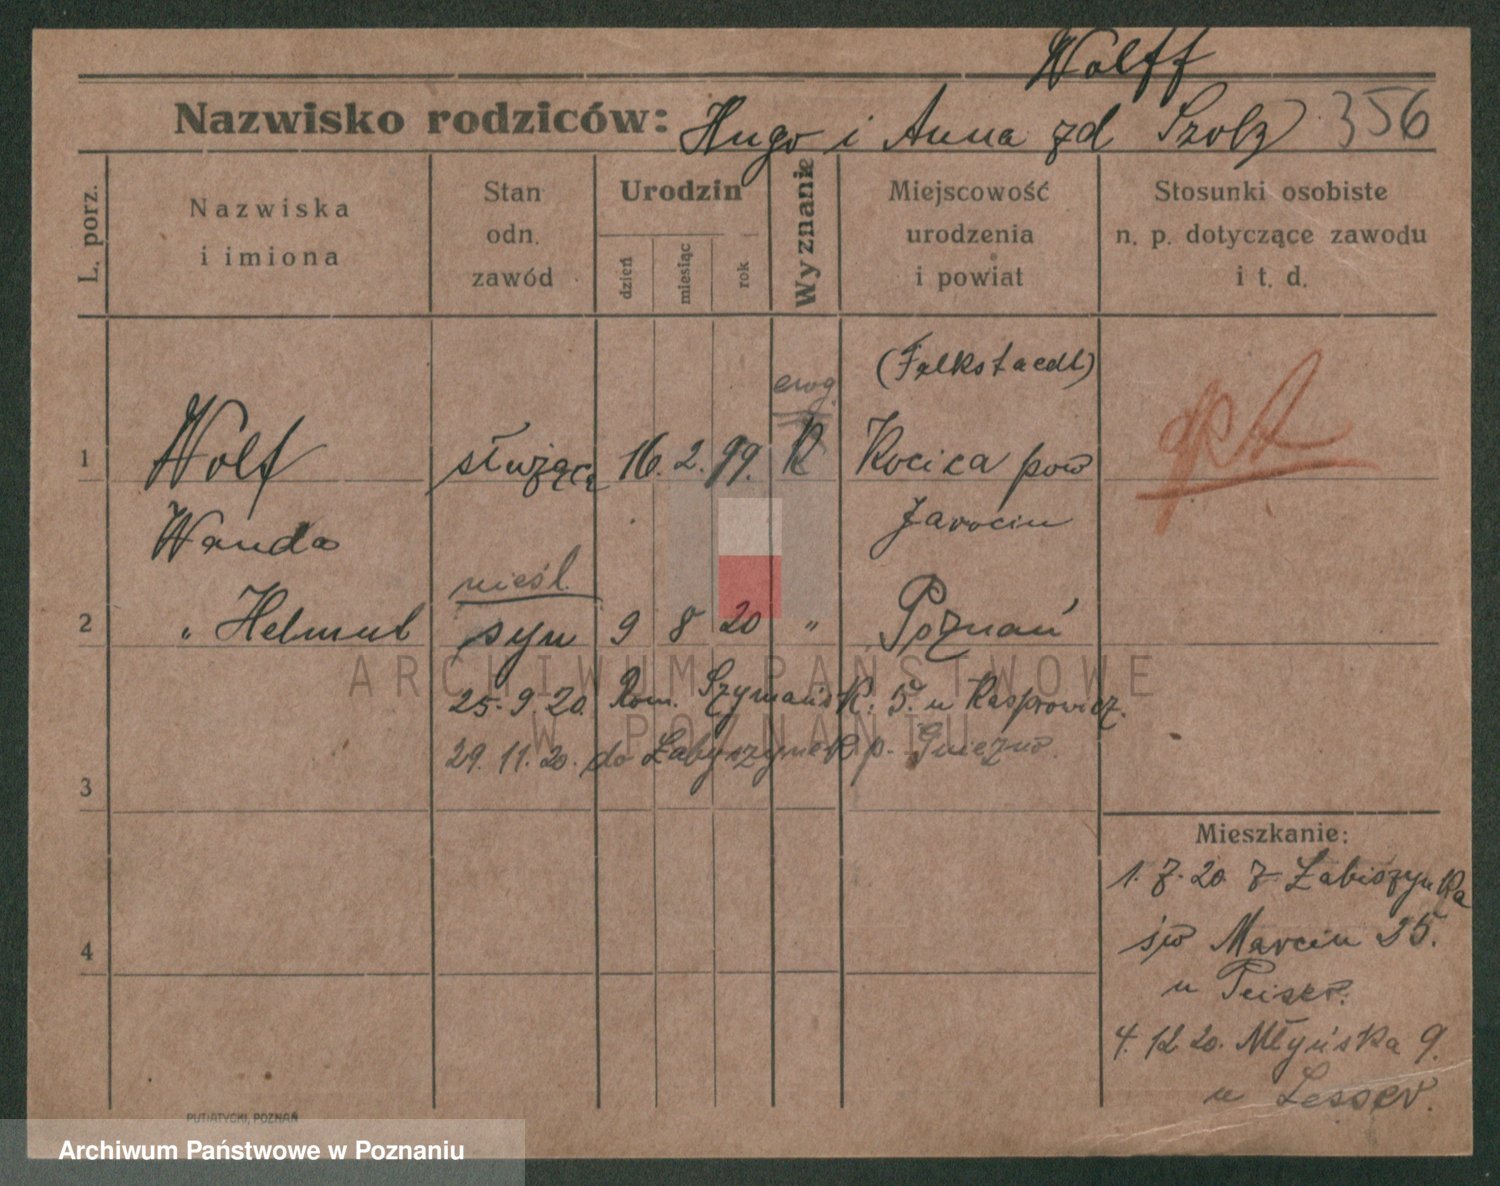 Wolff
Nazwisko rodziców: Hugo i Anna zd Szolz 356
L. porz.
Nazwiska
i imiona
Stan
odn.
zawód
Urodzin
dzień
miesiąc
rok
Wyznanie
Miejscowość
urodzenia
i powiat
Stosunki osobiste
n. p. dotyczące zawodu
i t. d.
(Falkstaedt)
ewg.
1 Wolf służąca 16. 2. 99. K Kocica pow
Wanda Jarocin
nieśl.
2 " Helmut syn 9 8 20 " Poznań
25. 9 20. Rom. Szymańsk. 5. u Kasprowicz.
29. 11. 20. do Łabyszynek p. Gniezno.
3
Mieszkanie:
1. 7. 20 z Łabiszynka
4
św Marcin 35.
u
4. 12 20. Młyńska 9.
u Lesser.
PUTIATYCKI, POZNAŃ
ARCHIWUM PAŃSTWOWE
W POZNANIU
Archiwum Państwowe w Poznaniu